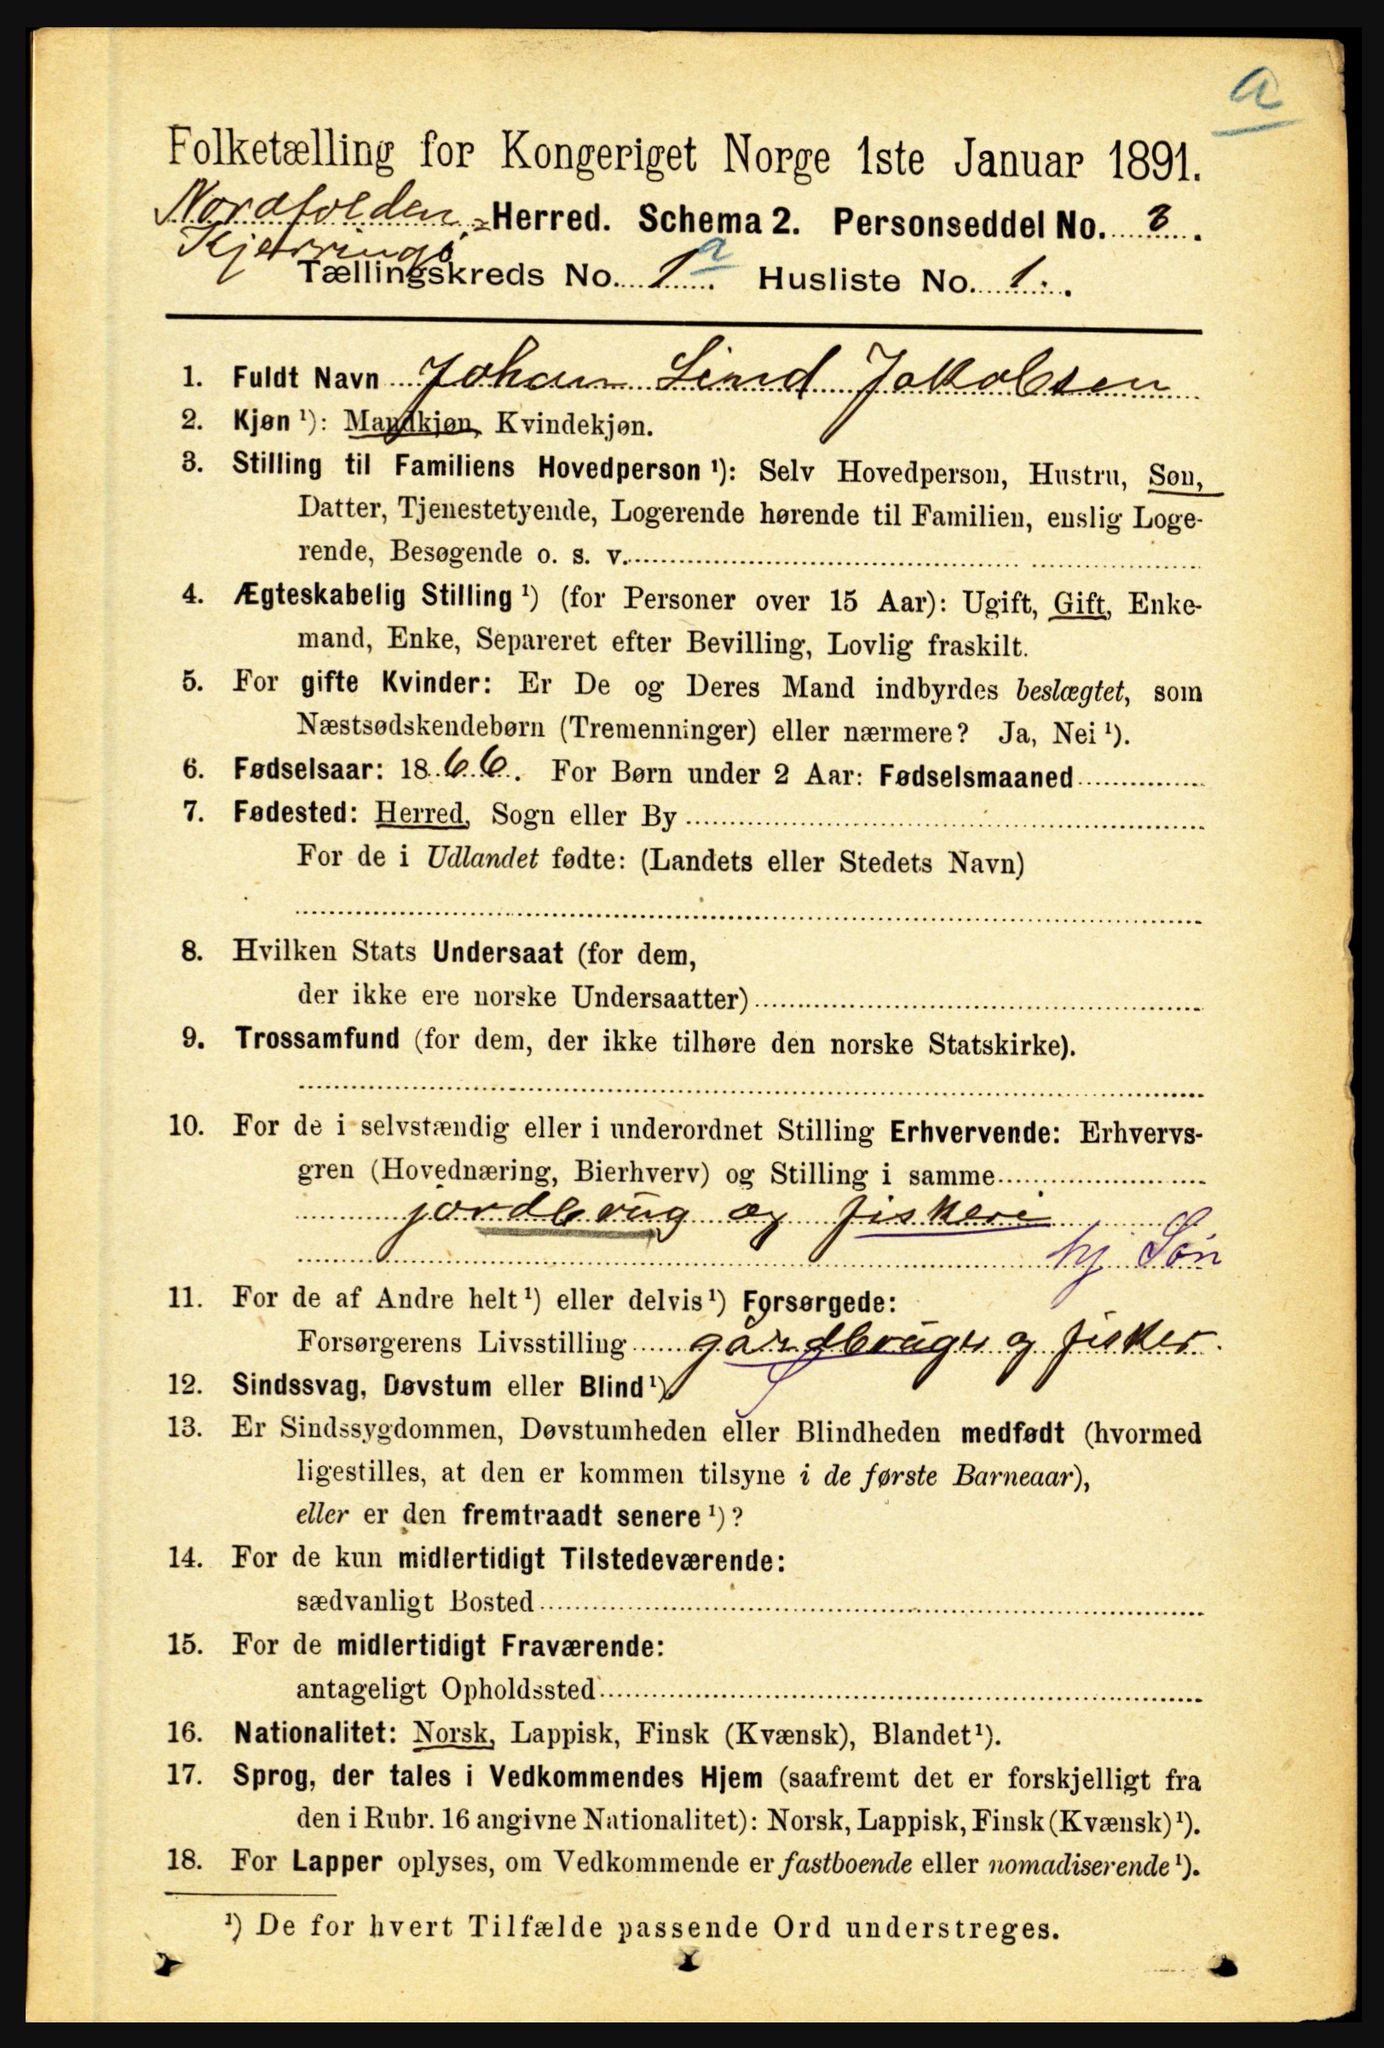 a
Folketælling for Kongeriget Norge 1ste Januar 1891.
Nordfolden- Herred. Schema 2. Personseddel No. 3.
Kjerringø
Tællingskreds No. 1 a. Husliste No. 1.
1. Fuldt Navn Johan Lind Jakobsen
2. Kjøn ¹): Mandkjøn, Kvindekjøn.
3. Stilling til Familiens Hovedperson ¹): Selv Hovedperson, Hustru, Søn,
Datter, Tjenestetyende, Logerende hørende til Familien, enslig Loge-
rende, Besøgende o. s. v.
4. Ægteskabelig Stilling ¹) (for Personer over 15 Aar): Ugift, Gift, Enke-
mand, Enke, Separeret efter Bevilling, Lovlig fraskilt.
5. For gifte Kvinder: Er De og Deres Mand indbyrdes beslægtet, som
Næstsødskendebørn (Tremenninger) eller nærmere? Ja, Nei ¹).
6. Fødselsaar: 1866. For Børn under 2 Aar: Fødselsmaaned
7. Fødested: Herred, Sogn eller By
For de i Udlandet fødte: (Landets eller Stedets Navn)
8. Hvilken Stats Undersaat (for dem,
der ikke ere norske Undersaatter)
9. Trossamfund (for dem, der ikke tilhøre den norske Statskirke).
10. For de i selvstændig eller i underordnet Stilling Erhvervende: Erhvervs-
gren (Hovednæring, Bierhverv) og Stilling i samme
jordbrug og fiskeri
hj Søn
11. For de af Andre helt ¹) eller delvis ¹) Forsørgede:
Forsørgerens Livsstilling gårdbruger og fisker.
12. Sindssvag, Døvstum eller Blind ¹).
13. Er Sindssygdommen, Døvstumheden eller Blindheden medfødt (hvormed
ligestilles, at den er kommen tilsyne i de første Barneaar),
eller er den fremtraadt senere ¹)?
14. For de kun midlertidigt Tilstedeværende:
sædvanligt Bosted
15. For de midlertidigt Fraværende:
antageligt Opholdssted
16. Nationalitet: Norsk, Lappisk, Finsk (Kvænsk), Blandet ¹).
17. Sprog, der tales i Vedkommendes Hjem (saafremt det er forskjelligt fra
den i Rubr. 16 angivne Nationalitet): Norsk, Lappisk, Finsk (Kvænsk) ¹).
18. For Lapper oplyses, om Vedkommende er fastboende eller nomadiserende ¹).
¹) De for hvert Tilfælde passende Ord understreges.